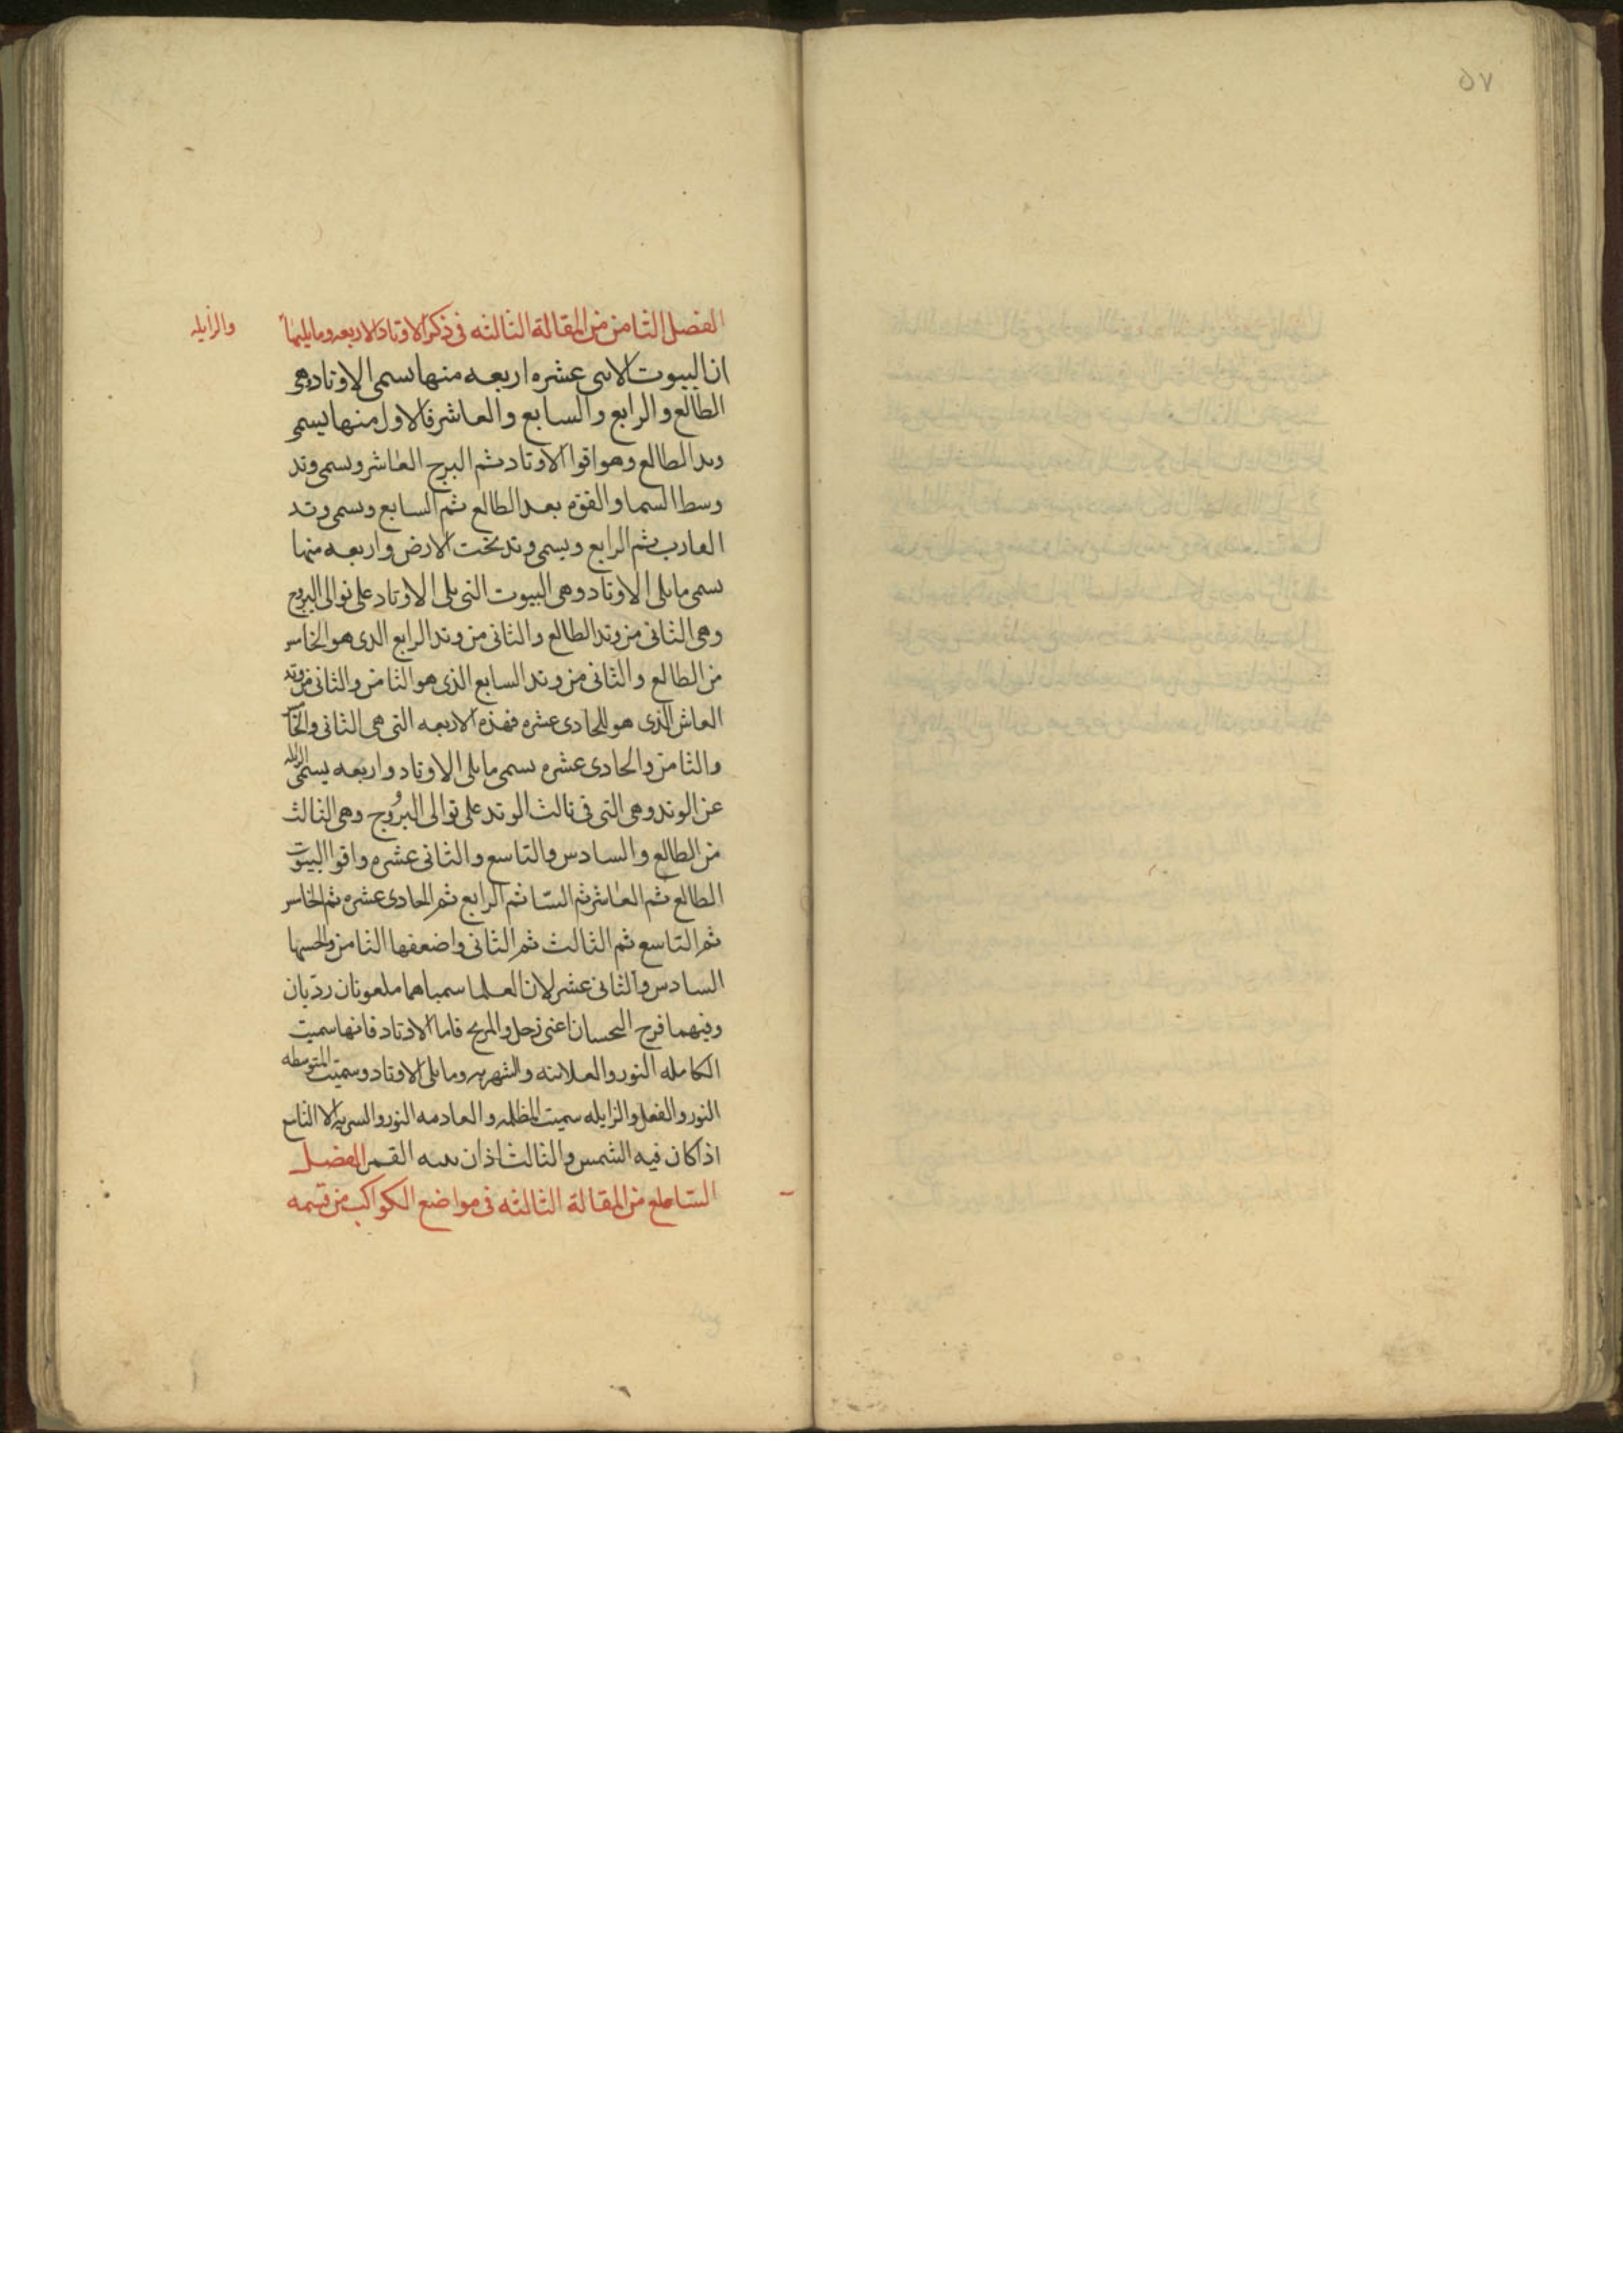 ٥٧
الفصل الثامن من المقالة الثالثه فى ذكر الاوتاد الاربعه ومايليها
والزايله
ان البيوت الاثنى عشره اربعه منها تسمى الاوتاد وهى
الطالع والرابع والسابع والعاشر فالاول منها يسمى
وتد الطالع وهو اقوا الاوتاد ثم البرج العاشر ويسمى وتد
وسط السما والقوه بعد الطالع ثم السابع ويسمى وتد
الغارب ثم الرابع ويسمى وتد تحت الارض واربعه منها
تسمى مايلى الاوتاد وهى البيوت التى يلى الاوتاد على توالى البروج
وهى الثانى من وتد الطالع والثانى من وتد الرابع الذى هو الخامس
من الطالع والثانى من وتد السابع الذى هو الثامن والثانى من وتد
العاشر الذى هو الحادى عشره فهذه الاربعه التى هى الثانى والخامس
والثامن والحادى عشره تسمى مايلى الاوتاد واربعه يسمى الزايله
عن الوتد وهى التى فى ثالث الوتد على توالى البروج وهى الثالث
من الطالع والسادس والتاسع والثانى عشره واقوا البيوت
الطالع ثم العاشر ثم السا ثم الرابع ثم الحادى عشره ثم الخامس
ثم التاسع ثم الثالث ثم الثانى واضعفها الثامن وانحسها
السادس والثانى عشر لان العلما سمياهما ملعونان رديان
وفيهما فرح النحسان اعنى زحل والمريخ فاما الاوتاد فانها سميت
الكامله النور والعلانيه والشهره ومايلى الاوتاد وسميت المتوسطه
النور والفعل والزايله سميت المظلمه والعادمه النور والسريه الا التاسع
اذا كان فيه الشمس والثالث اذا ن فيه القمر الفصل
التاسع من المقالة الثالثه فى مواضع الكواكب من قسمه